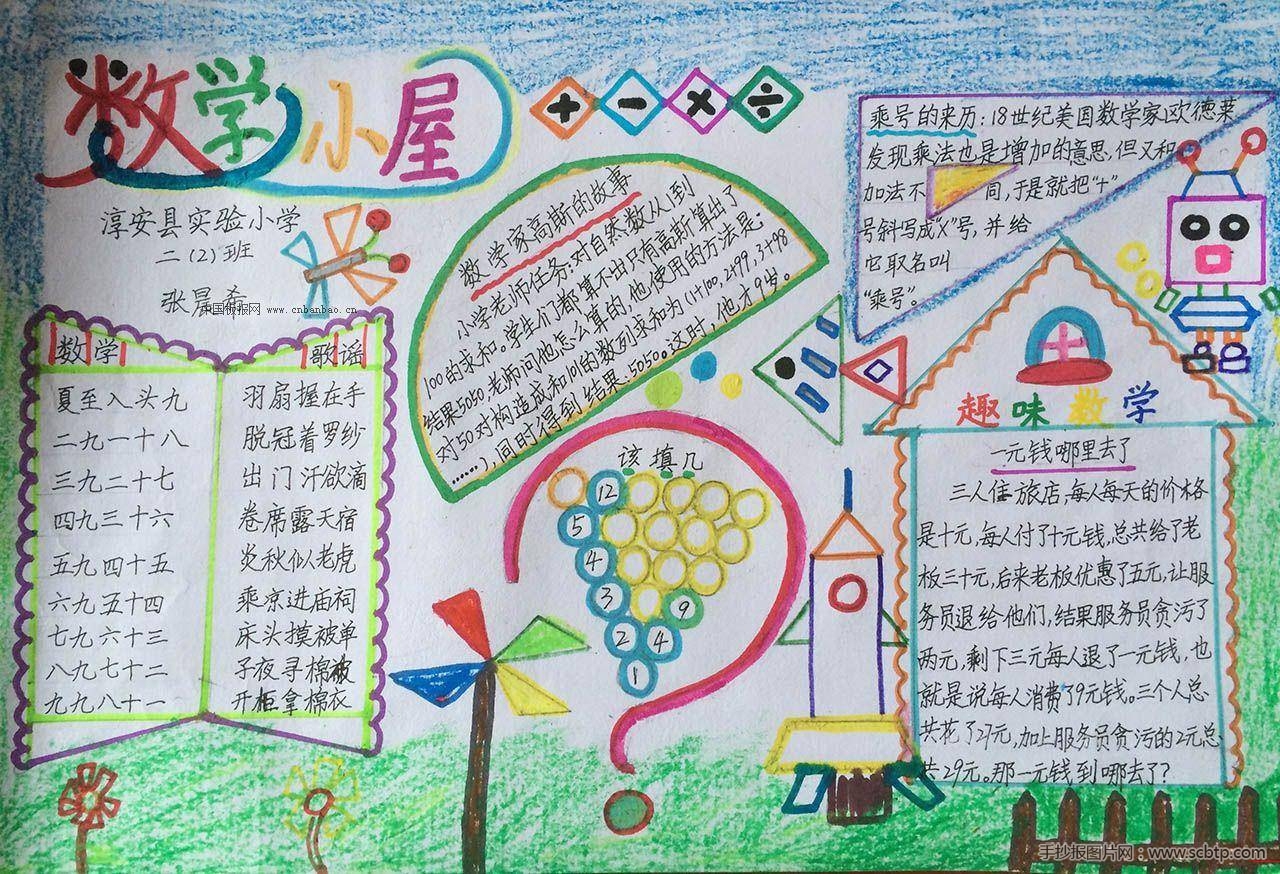 数学小屋
淳安县实验小学
二(2)班
张晨希
中国板报网 www.cnbanbao.cn
数学
歌谣
夏至入头九
羽扇握在手
二九一十八
脱冠着罗纱
三九二十七
出门汗欲滴
四九三十六
卷席露天宿
五九四十五
炎秋似老虎
六九五十四
乘京进庙祠
七九六十三
床头摸被单
八九七十二
子夜寻棉被
九九八十一
开柜拿棉衣
+ - × ÷
数学家高斯的故事
小学老师任务:对自然数从1到
100的求和。学生们都算不出只有高斯算出了
结果5050,老师问他怎么算的,他使用的方法是:
对50对构造成和101的数列求和为(1+100,2+99,3+98
……),同时得到结果:5050。这时,他才9岁。
该填几
12
5
4
3
9
2 4
1
乘号的来历:18世纪美国数学家欧德莱
发现乘法也是增加的意思,但又和
加法不 同,于是就把"+"
号斜写成"X"号,并给
它取名叫
"乘号"。
趣味数学
一元钱哪里去了
三人住旅店,每人每天的价格
是十元,每人付了十元钱,总共给了老
板三十元,后来老板优惠了五元,让服
务员退给他们,结果服务员贪污了
两元,剩下三元每人退了一元钱,也
就是说每人消费了9元钱。三个人总
共花了27元,加上服务员贪污的2元总
共29元。那一元钱到哪去了?
手抄报图片网:www.scbtp.com